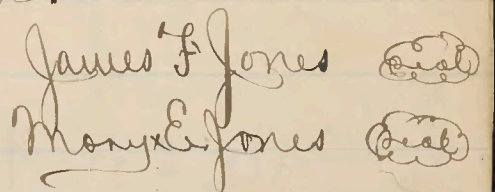 James F. Jones Seal
Mary x E. Jones Seal